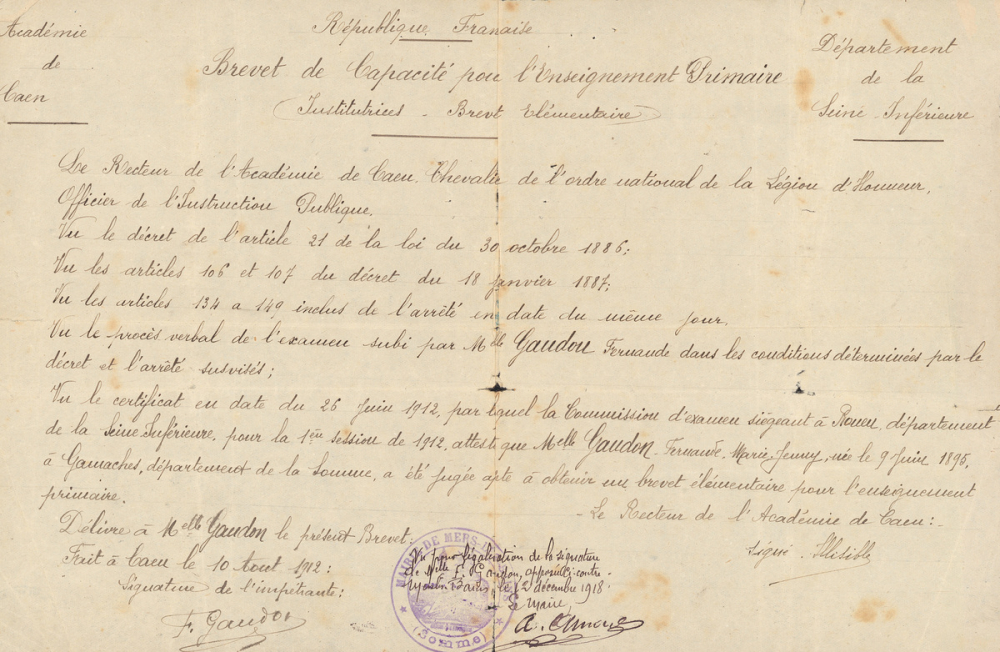 Académie
de
Caen
République Franaise
Brevet de Capacité pou l'Enseignement Primaire
Institutrices - Brevt Elémentaire
Département
de la
Seine-Inférieure
Le Recteur de l'Académie de Caen. Chevalie de l'ordre national de la Légion d'Honneur,
Officier de l'Instruction Publique.
Vu le décret de l'article 21 de la loi du 30 octobre 1886;
Vu les articles 106 et 107 du décret du 18 janvier 1887;
Vu les articles 134 a 149 inclus de l'arrêté en date du même jour.
Vu le procès verbal de l'examen subi par Melle Gaudon Fernande dans les conditions déterminées par le
décret et l'arrêté susvisés;
Vu le certificat en date du 26 Juin 1912, par lequel la Commission d'examen siégeant à Rouen, département
de la Seine Inférieure, pour la 1ère session de 1912, atteste que Melle Gaudon Fernande Marie Jenny, née le 9 Juin 1895,
à Gamaches, département de la Somme, a été jugée apte à obtenir un brevet élémentaire pour l'enseignement
primaire.
- Le Recteur de l'Académie de Caen:-
Délivre à Melle Gaudon le présent Brevet:
Signé: Illisible
Fait à Caen le 10 Aout 1912:
Signature de l'impétrante:
F. Gaudon
MAIRIE DE MERS
(Somme)
Vu pour légalisation de la signature
de Mlle F. Gaudon, apposée ci-contre.
Mers-les-Bains, le 12 décembre 1918.
Le Maire,